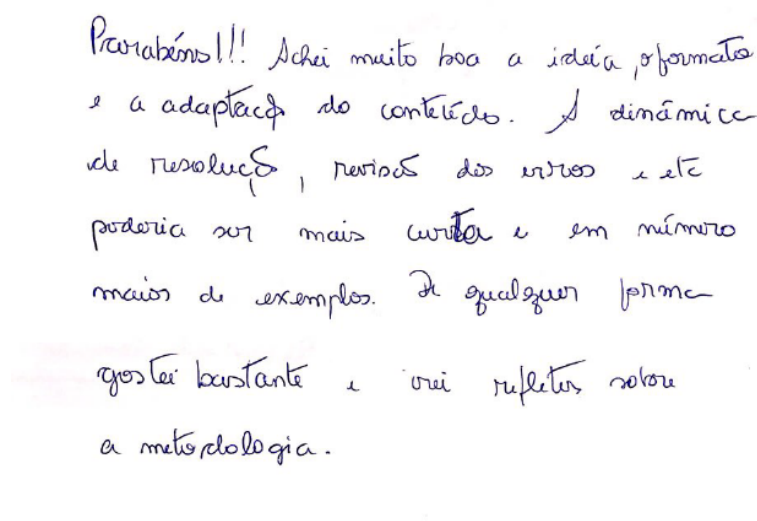 Parabéns!!! Achei muito boa a idéia, o formato
e a adaptação do conteúdo. A dinâmica
de resolução, revisão dos erros e etc
poderia ser mais curta e em número
maior de exemplos. De qualquer forma
gostei bastante e irei refletir sobre
a metodologia.